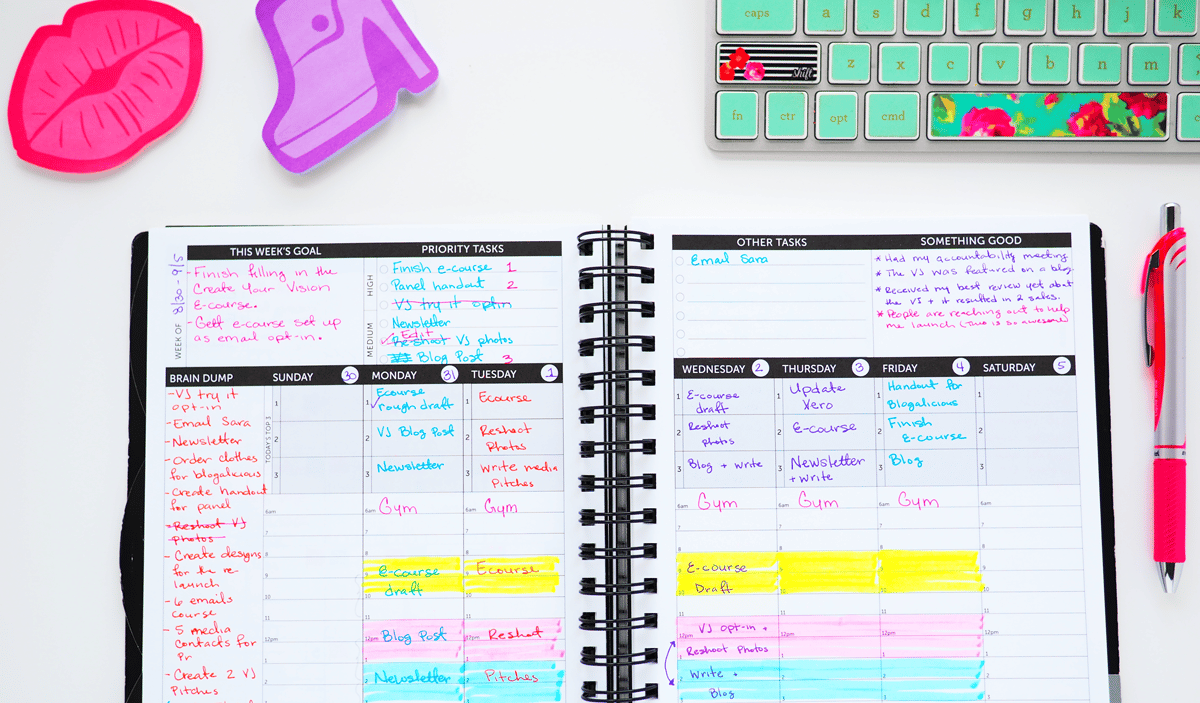 caps a s d f g h j k
shift z x c v b n m
fn ctr opt cmd
WEEK OF 8/30 - 9/5
THIS WEEK'S GOAL
- Finish filling in the
Create Your Vision
E-course.
- Get e-course set up
as email opt-in.
PRIORITY TASKS
HIGH
Finish e-course 1
Panel handout 2
VJ try it optin
MEDIUM
Newsletter
Edit
Re-shoot VJ photos
Blog Post 3
OTHER TASKS
Email Sara
SOMETHING GOOD
* Had my accountability meeting
* The VJ was featured on a blog
* Received my best review yet about
the VJ + it resulted in 2 sales.
* People are reaching out to help
me launch (This is so awesome)
BRAIN DUMP
- VJ try it
opt-in
- Email Sara
- Newsletter
- Order clothes
for blogalicious
- Create handout
for panel
- Reshoot VJ
photos
- Create designs
for the re-
launch
- 6 emails
course
- 5 media
contacts for
Pr
- Create 2 VJ
Pitches
TODAY'S TOP 3
SUNDAY 30
1
2
3
6am
7
8
9
10
11
12pm
1
2
MONDAY 31
1 Ecourse
rough draft
2 VJ Blog Post
3 Newsletter
6am Gym
7
8
9 E-course
10 draft
11
12pm Blog Post
1
2 Newsletter
TUESDAY 1
1 Ecourse
2 Reshoot
Photos
3 Write media
Pitches
6am Gym
7
8
9 Ecourse
10
11
12pm Reshoot
1
2 Pitches
WEDNESDAY 2
1 E-course
draft
2 Reshoot
photos
3 Blog + write
6am Gym
7
8
9 E-course
10 Draft
11
12pm VJ opt-in +
1 Reshoot Photos
2 Write +
Blog
THURSDAY 3
1 Update
Xero
2 E-course
3 Newsletter
+ write
6am Gym
7
8
9
10
11
12pm
1
2
FRIDAY 4
1 Handout for
Blogalicious
2 Finish
E-course
3 Blog
6am Gym
7
8
9
10
11
12pm
1
2
SATURDAY 5
1
2
3
6am
7
8
9
10
11
12pm
1
2